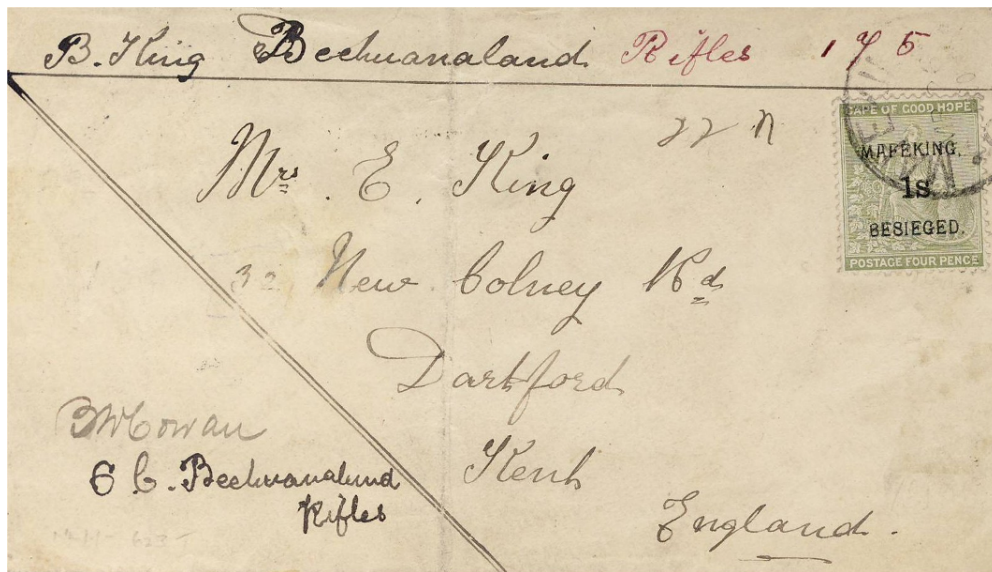 B. King Bechuanaland Rifles 175
22 n
CAPE OF GOOD HOPE
MAFEKING,
1s.
BESIEGED.
POSTAGE FOUR PENCE
Mrs. E. King
32 New Colney Rd
Dartford
Kent
England.
Cowan
C. Bechuanaland
Rifles